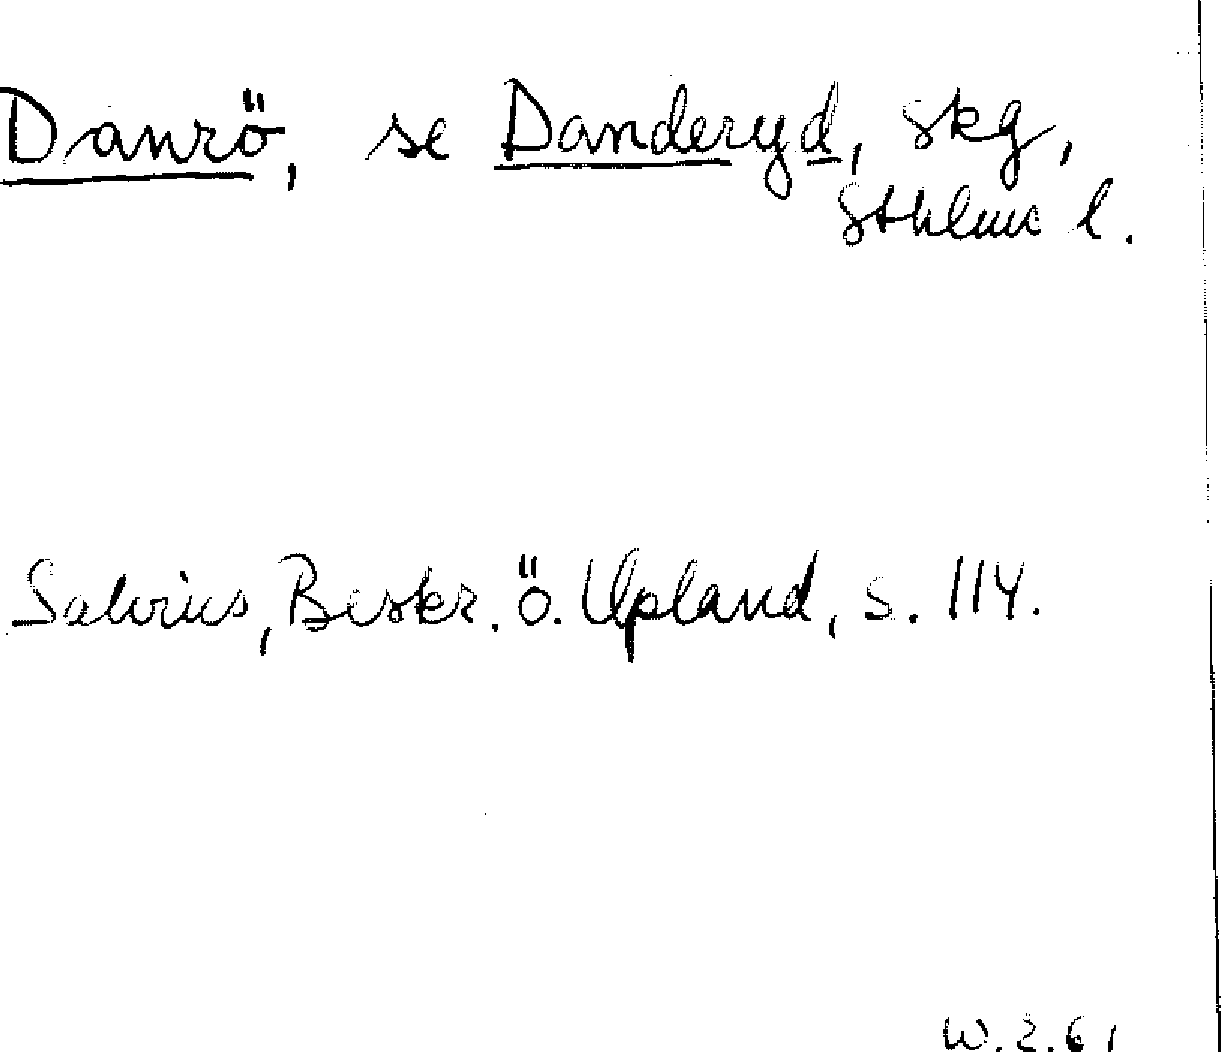 Danrö, se Danderyd, skg,
Sthlms l.
Salvius, Beskr. ö. Upland, s. 114.
W. 2. 61